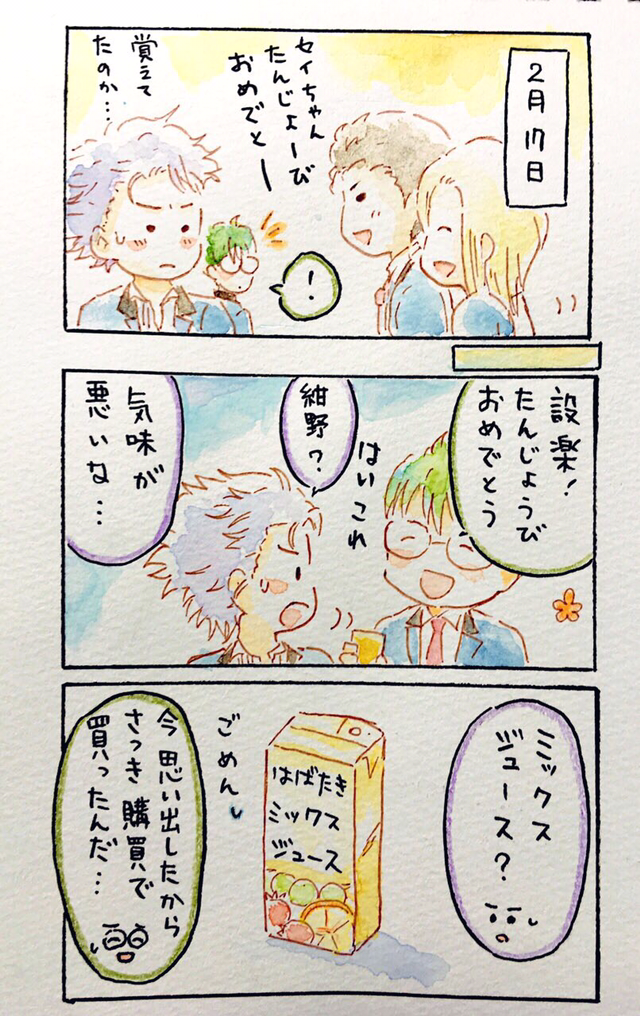 2月17日
セイちゃん
たんじょーび
おめでとー
覚えて
たのか…
!
設楽!
たんじょうび
おめでとう
はいこれ
紺野?
気味が
悪いな…
ミックス
ジュース?
はばたき
ミックス
ジュース
ごめん
今思い出したから
さっき購買で
買ったんだ…